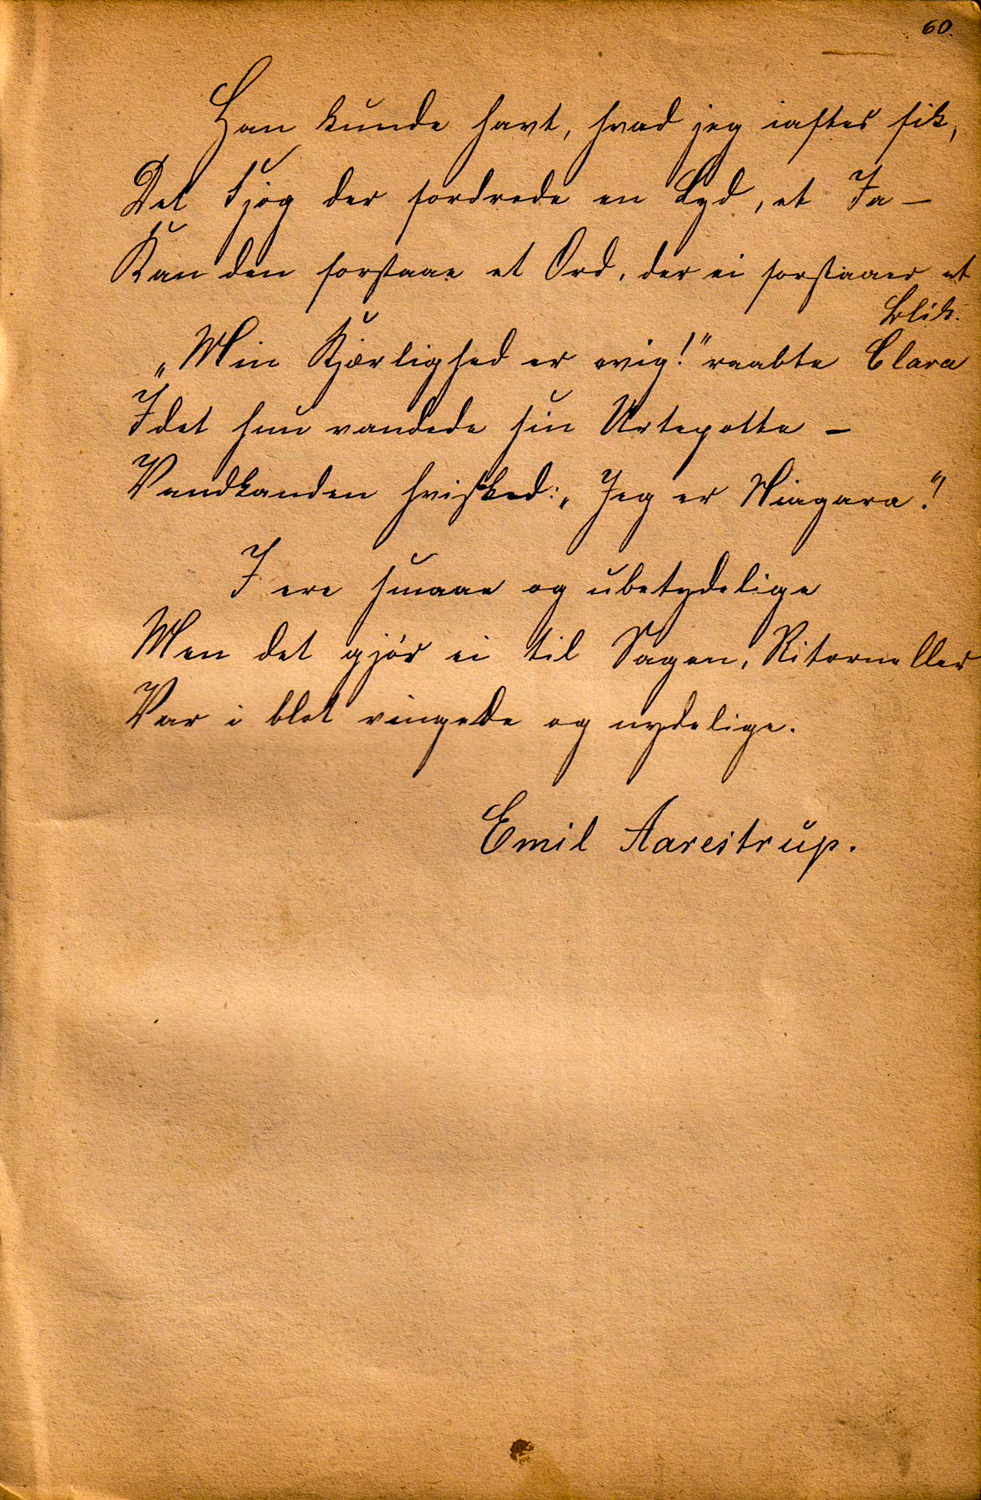 60.
Han kunde havt, hvad jeg iaftes fik,
Det Fjog der fordrede en Lyd, et Ja –
Kan den forstaae et Ord, der ei forstaaer et
Blik.
„Min Kjærlighed er evig!" raabte Clara
Idet hun vandede sin Urtepotte –
Vandkanden hvisked: „Jeg er Niagara!"
I ere smaae og ubetydelige
Men det gjør ei til Sagen, Ritorneller
Var i blot vingede og nydelige.
Emil Aarestrup.